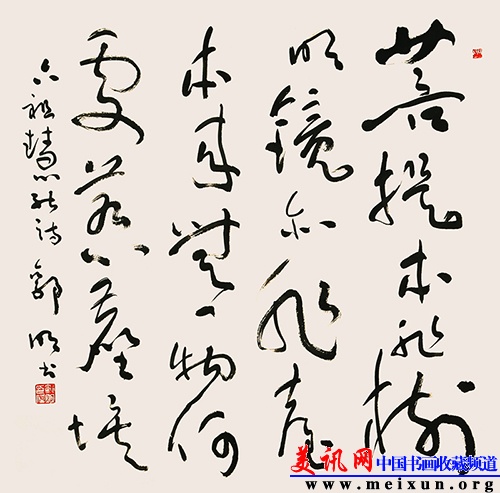 菩提本非樹
明鏡亦非臺
本來無一物何
處惹塵埃
六祖慧能诗 郭明书
美讯网 中国书画收藏频道
www.meixun.org